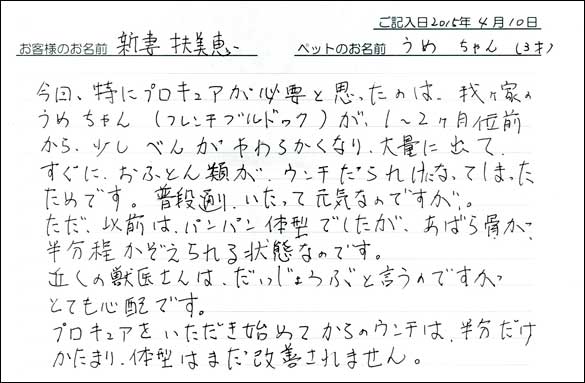 ご記入日2015年4月10日
お客様のお名前 新妻 扶美恵 ペットのお名前 うめ ちゃん (3才)
今回、特にプロキュアが必要と思ったのは、我が家の
うめちゃん (フレンチブルドック) が、1～2ヶ月位前
から、少しべんがやわらかくなり、大量に出て、
すぐに、おふとん類が、ウンチだらけになってしまった
ためです。普段通り、いたって元気なのですが。
ただ、以前は、パンパン体型でしたが、あばら骨が
半分程かぞえられる状態なのです。
近くの獣医さんは、だいじょうぶと言うのですが
とても心配です。
プロキュアをいただき始めてからのウンチは、半分だけ
かたまり、体型はまだ改善されません。